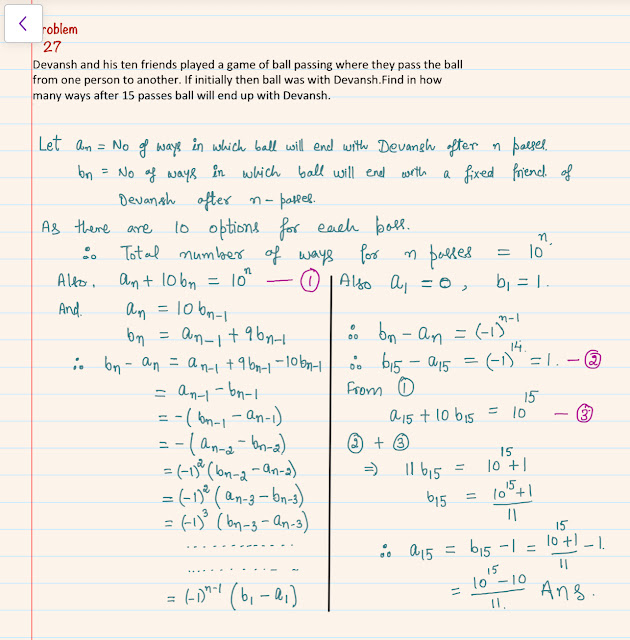 roblem
27
Devansh and his ten friends played a game of ball passing where they pass the ball
from one person to another. If initially then ball was with Devansh.Find in how
many ways after 15 passes ball will end up with Devansh.
Let an = No of ways in which ball will end with Devansh after n passes.
bn = No of ways in which ball will end with a fixed friend of
Devansh after n- passes.
As there are 10 options for each pass.
∴ Total number of ways for n passes = 10^n.
Also, an + 10bn = 10^n — ①
And. an = 10bn-1
bn = an-1 + 9bn-1
∴ bn - an = an-1 + 9bn-1 - 10bn-1
= an-1 - bn-1
= -(bn-1 - an-1)
= -(an-2 - bn-2)
= (-1)^2 (bn-2 - an-2)
= (-1)^2 (an-3 - bn-3)
= (-1)^3 (bn-3 - an-3)
- - - - - - - - - - - -
. . . . . . - - - - - -
= (-1)^n-1 (b1 - a1)
Also a1 = 0, b1 = 1.
∴ bn - an = (-1)^n-1
∴ b15 - a15 = (-1)^14 = 1. — ②
From ①
a15 + 10b15 = 10^15 — ③
② + ③
⇒ 11b15 = 10^15 + 1
b15 = 10^15+1/11
∴ a15 = b15 - 1 = 10^15+1/11 - 1.
= 10^15-10/11. Ans.